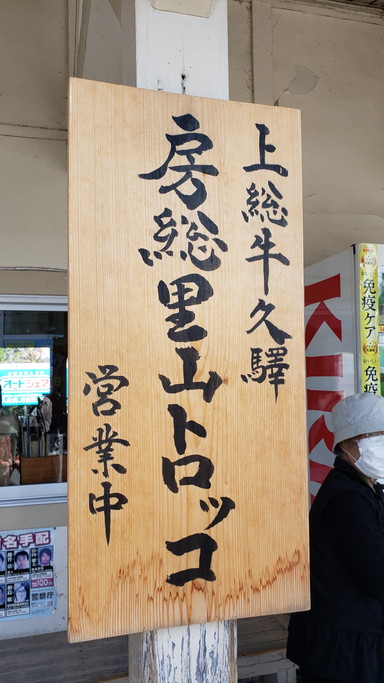 上総牛久驛
房総里山トロッコ
営業中
KIRI
免疫ケア
免疫
オートシェア
名手配
警察庁